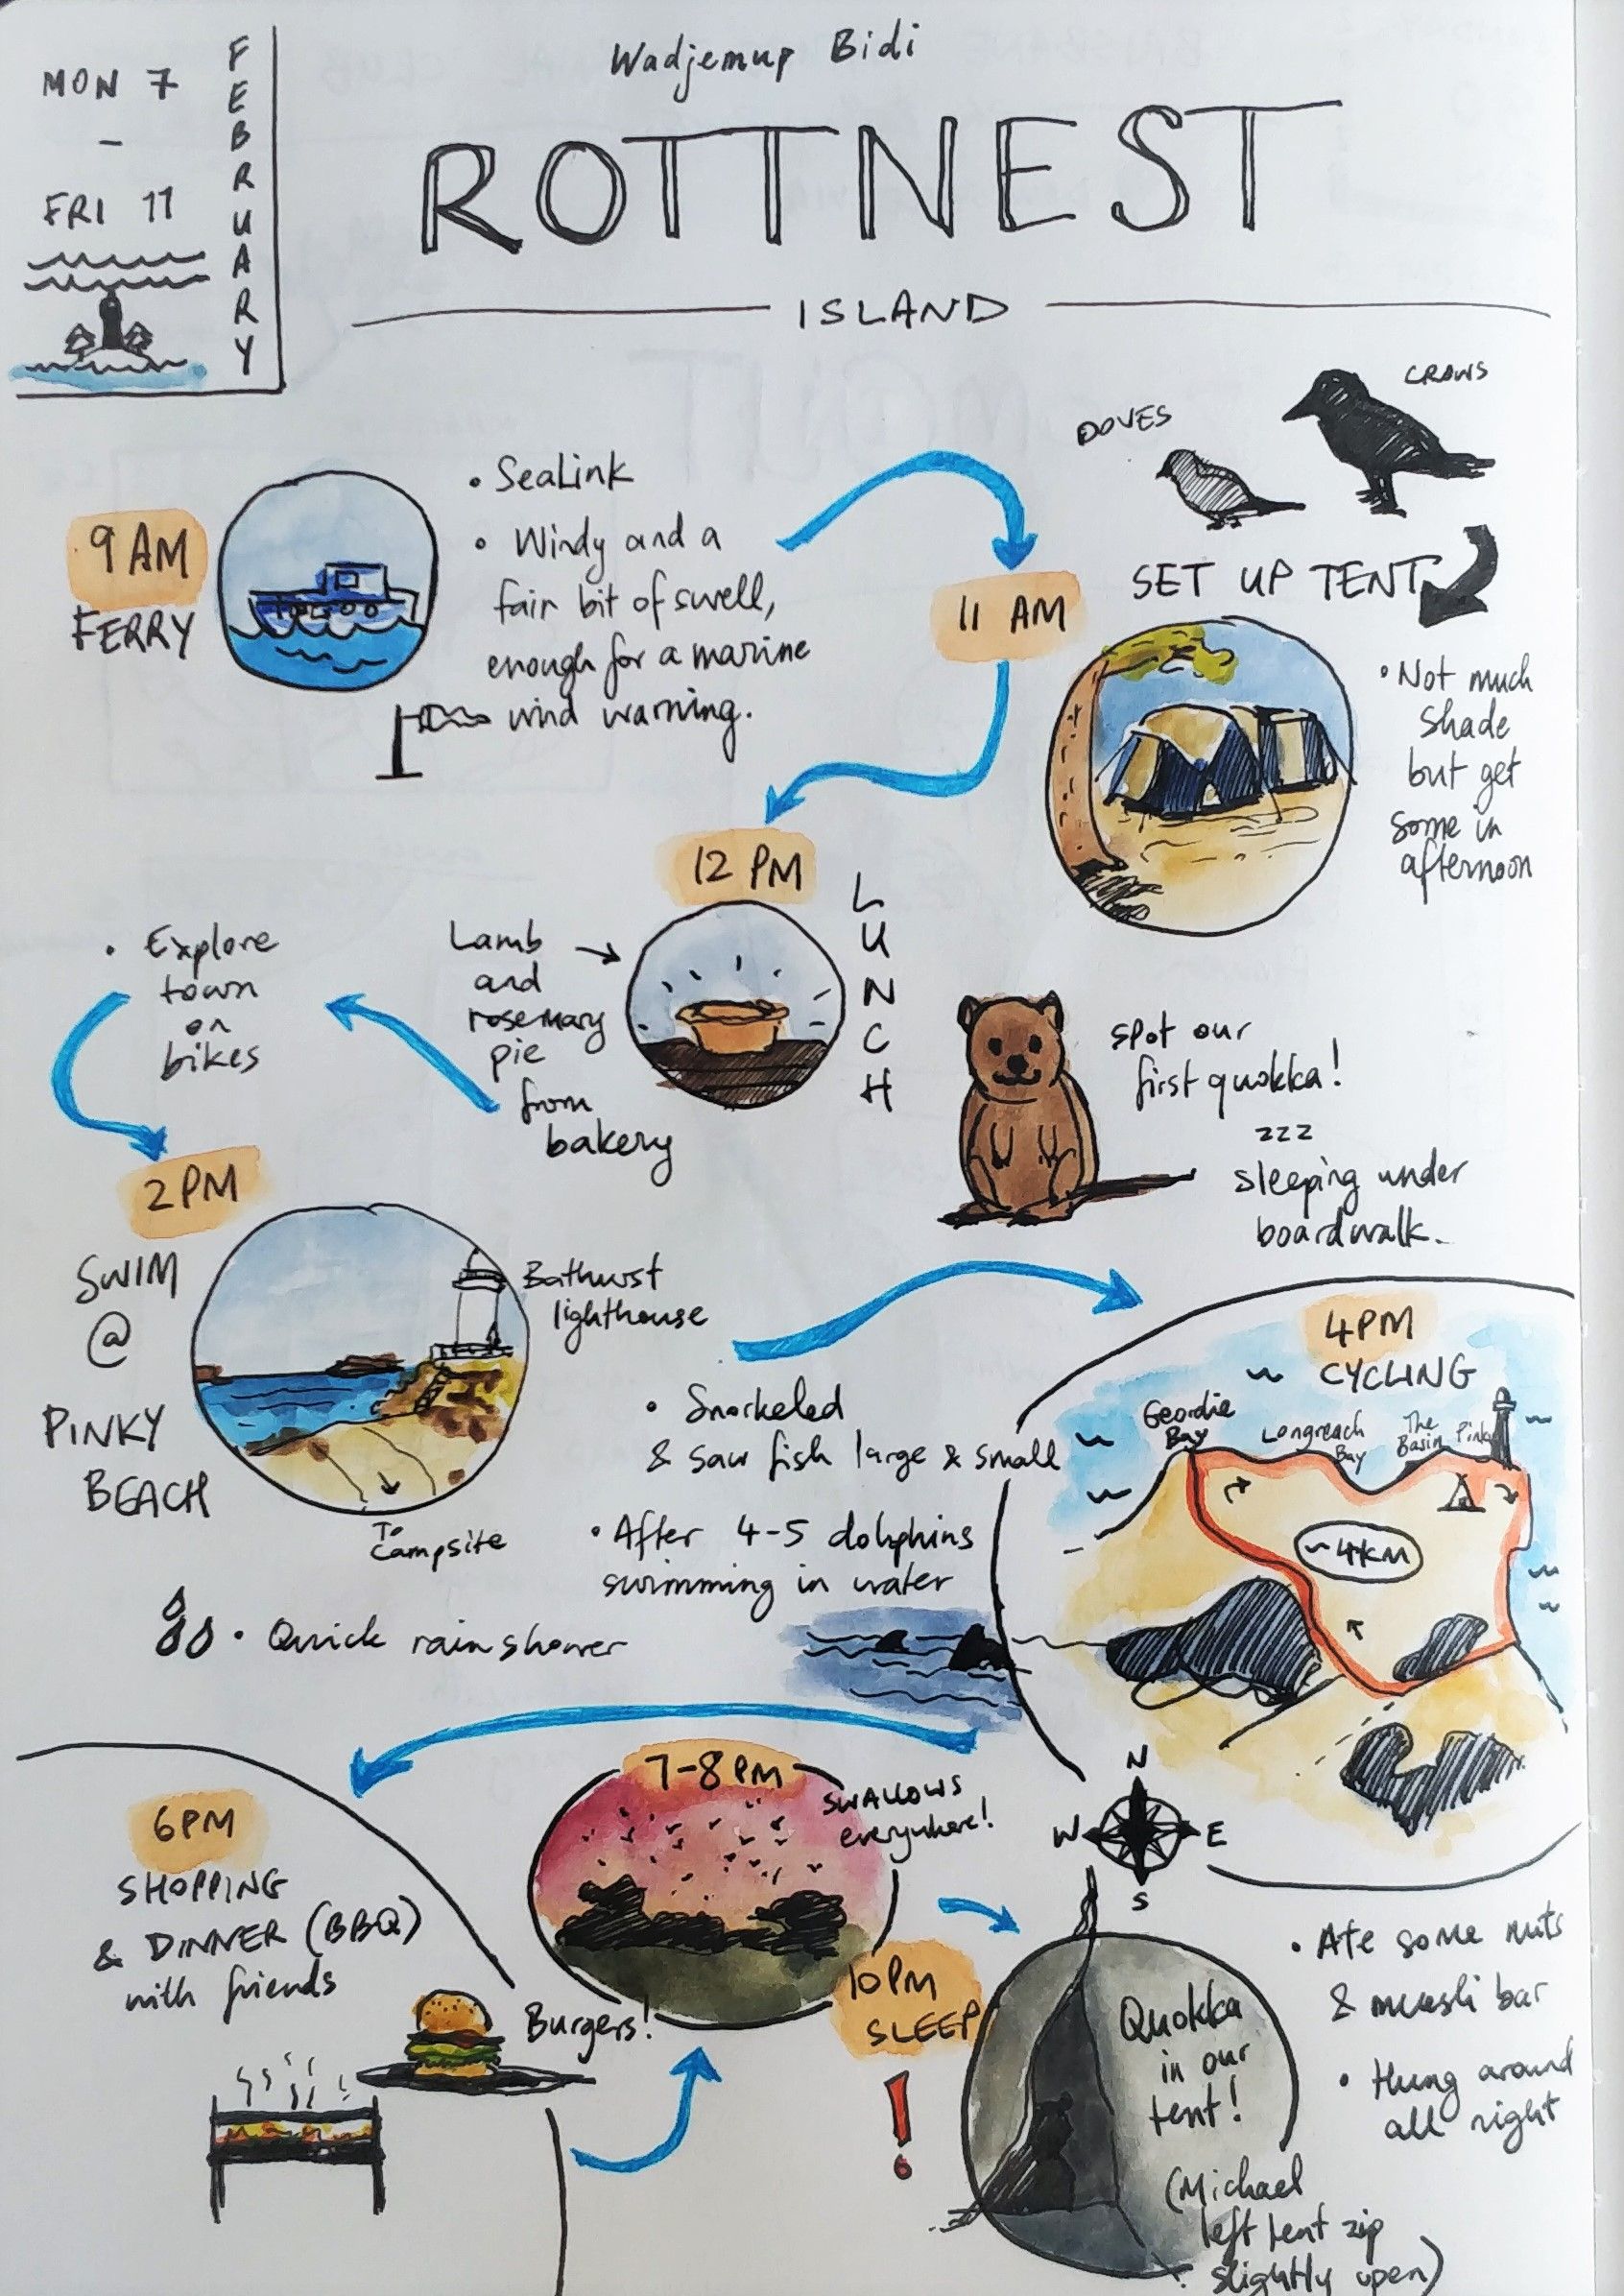 MON 7
-
FRI 11
FEBRUARY
Wadjemup Bidi
ROTTNEST
ISLAND
DOVES
CROWS
9 AM
FERRY
• SeaLink
• Windy and a
fair bit of swell,
enough for a marine
wind warning.
11 AM
SET UP TENT
• Not much
shade
but get
some in
afternoon
12 PM
LUNCH
Lamb
and
rosemary
pie
from
bakery
• Explore
town
on
bikes
spot our
first quokka!
zzz
sleeping under
boardwalk.
2 PM
SWIM
@
PINKY
BEACH
Bathurst
lighthouse
To
Campsite
• Snorkeled
& saw fish large & small
• After 4-5 dolphins
swimming in water
• Quick rain shower
4PM
CYCLING
Geordie
Bay
Longreach
Bay
The
Basin
Pinky
~4KM
N
W
E
S
6PM
SHOPPING
& DINNER (BBQ)
with friends
Burgers!
7-8 PM
SWALLOWS
everywhere!
10PM
SLEEP
!
Quokka
in our
tent!
(Michael
left tent zip
slightly open)
• Ate some nuts
& muesli bar
• Hung around
all night